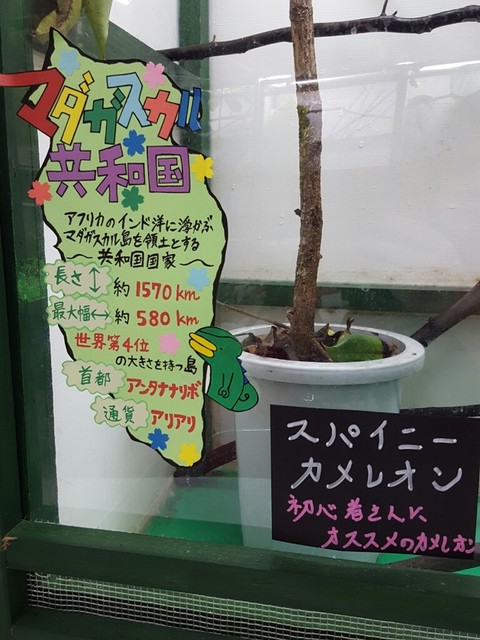 マダガスカル
共和国
アフリカのインド洋に浮かぶ
マダガスカル島を領土とする
共和国国家
長さ↕ 約1570km
最大幅↔ 約580km
世界第4位
の大きさを持つ島
首都 アンタナナリボ
通貨 アリアリ
スパイニー
カメレオン
初心者さんに
オススメのカメレオン